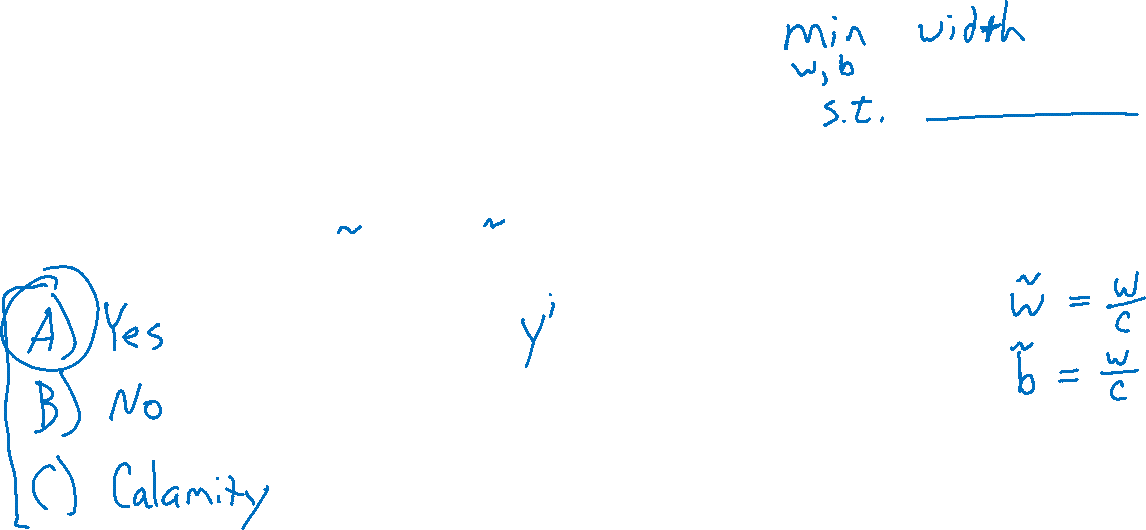 min width
w, b
s.t. ________
~ ~
A) Yes
B) No
C) Calamity
yⁱ
w̃ = w/c
b̃ = w/c